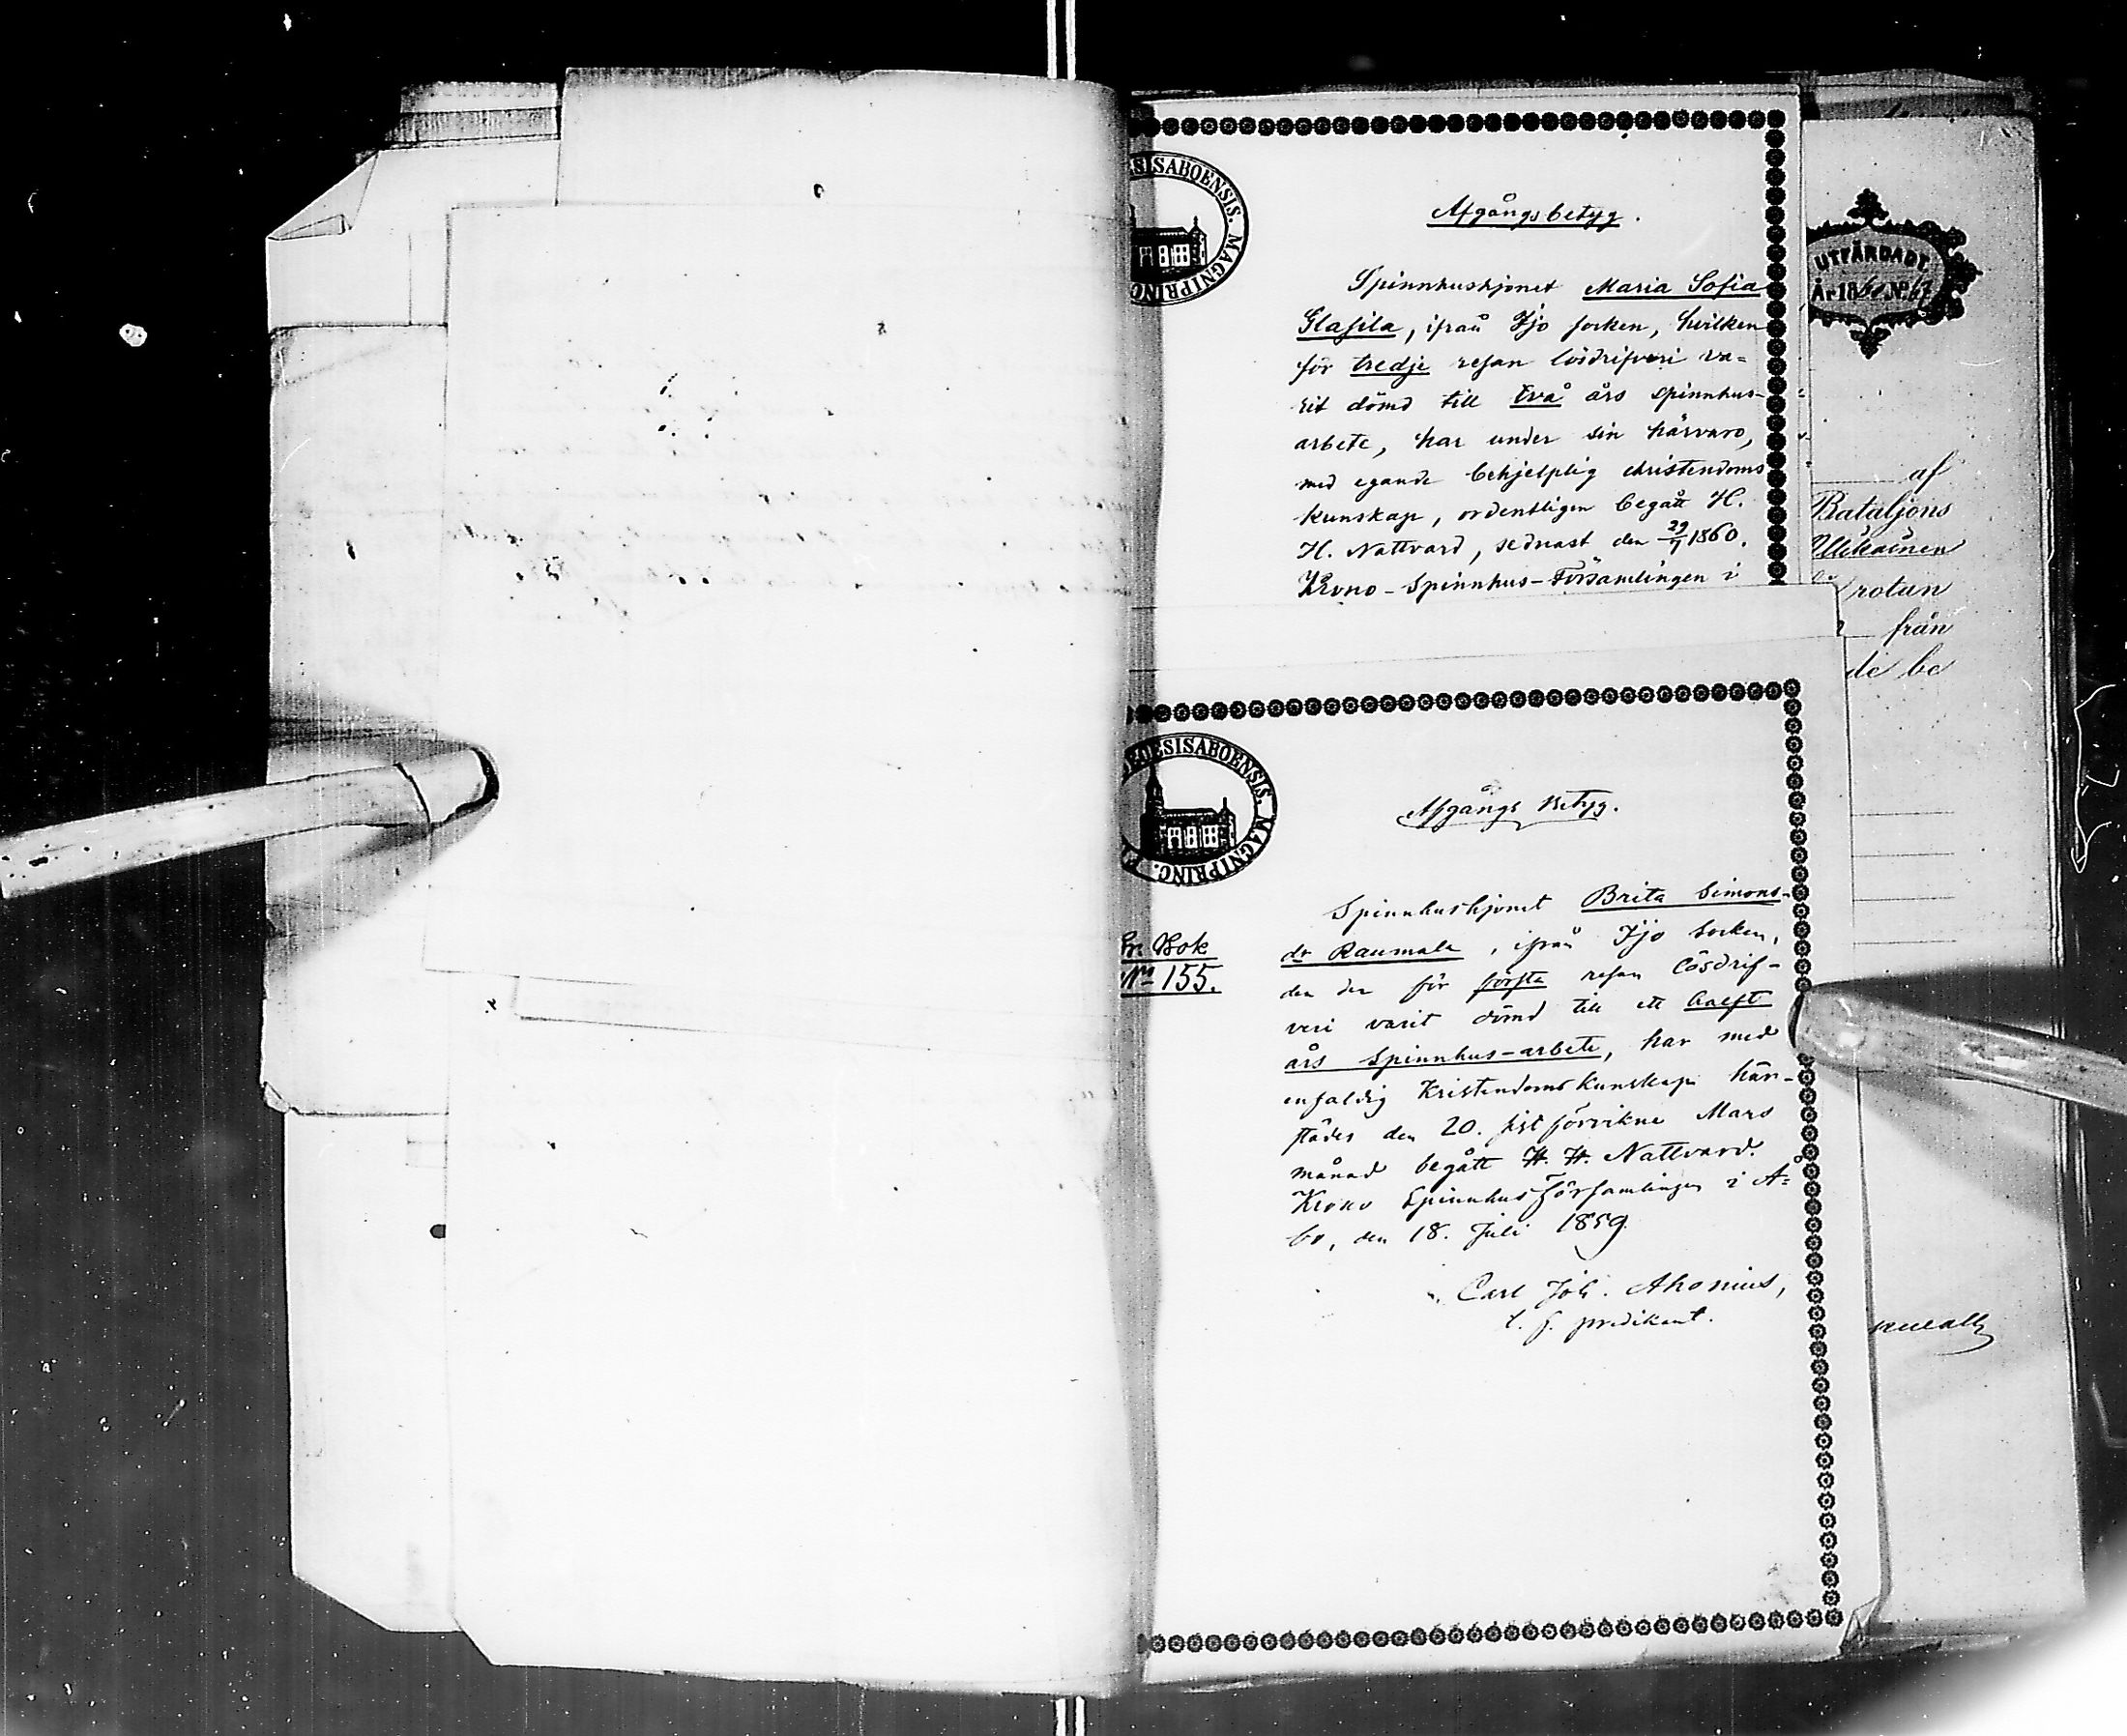 SISABOENSIS. MAGNIPRINC
Afgångsbetyg.
Spinnhushjonet Maria Sofia
Glafila, ifrån Ijo socken, hvilken
för tredje resan lösdrifveri va=
rit dömd till två års spinnhus-
arbete, har under sin härvaro,
med egande behjelplig christendoms
kunskap, ordentligen begått H.
H. Nattvard, sednast den 29/7 1860.
Krono-Spinnhus-Församlingen i
UTFÄRDADT
År 1860 No 67
af
Bataljons
Ulikainen
rotan
från
de be
OESISABOENSIS. MAGNIPRINC.
Afgångs Betyg.
Br. Bok
No 155.
Spinnhushjonet Brita Simons-
dr Raumala, ifrån Ijo Socken,
den der för första resan Lösdrif-
veri varit dömd till ett halft
års Spinnhus-arbete, har med
enfaldig Kristendoms kunskap här-
städes den 20. sistförvikne Mars
månad begått H. H. Nattvard.
Krono Spinnhus Församlingen i Å=
bo, den 18. Juli 1859.
Carl Joh. Ahonius,
t. f. predikant.